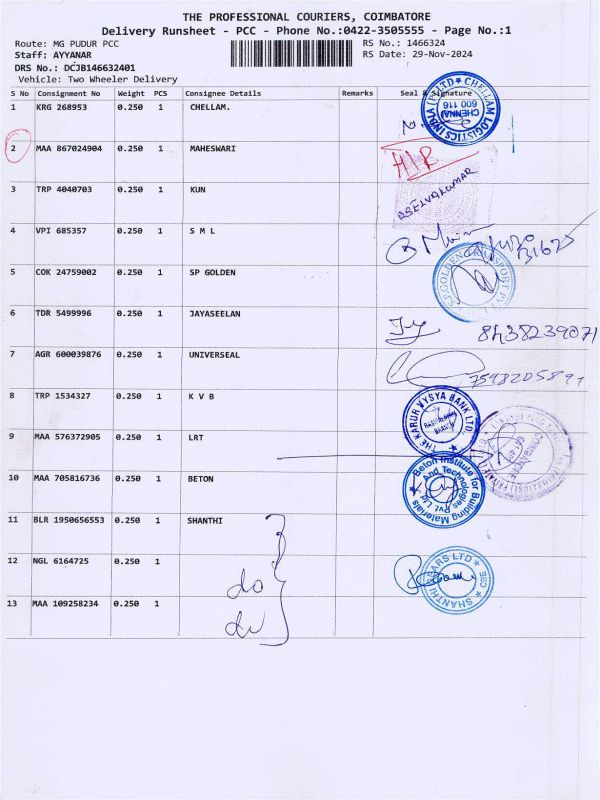 THE PROFESSIONAL COURIERS, COIMBATORE
Delivery Runsheet - PCC - Phone No.:0422-3505555 - Page No.:1
Route: MG PUDUR PCC
RS No.: 1466324
Staff: AYYANAR
RS Date: 29-Nov-2024
DRS No.: DCJB146632401
Vehicle: Two Wheeler Delivery
S No Consignment No Weight PCS Consignee Details Remarks Seal & Signature
1 KRG 268953 0.250 1 CHELLAM.
CHELLAM LOGISTICS INDIA (P) LTD CHENNAI 600 116
2 MAA 867024904 0.250 1 MAHESWARI
H/R
3 TRP 4040703 0.250 1 KUN
SELVAKUMAR
4 VPI 685357 0.250 1 S M L
5 COK 24759002 0.250 1 SP GOLDEN
SP GOLDEN TRANSPORT PVT
6 TDR 5499996 0.250 1 JAYASEELAN
8438239071
7 AGR 600039876 0.250 1 UNIVERSEAL
8 TRP 1534327 0.250 1 K V B
THE KARUR VYSYA BANK LTD.
9 MAA 576372905 0.250 1 LRT
10 MAA 705816736 0.250 1 BETON
Beton Institute for Building Materials And Technologies Pvt. Ltd
11 BLR 1950656553 0.250 1 SHANTHI
12 NGL 6164725 0.250 1
do
SHANTHI GEARS LTD
13 MAA 109258234 0.250 1
do